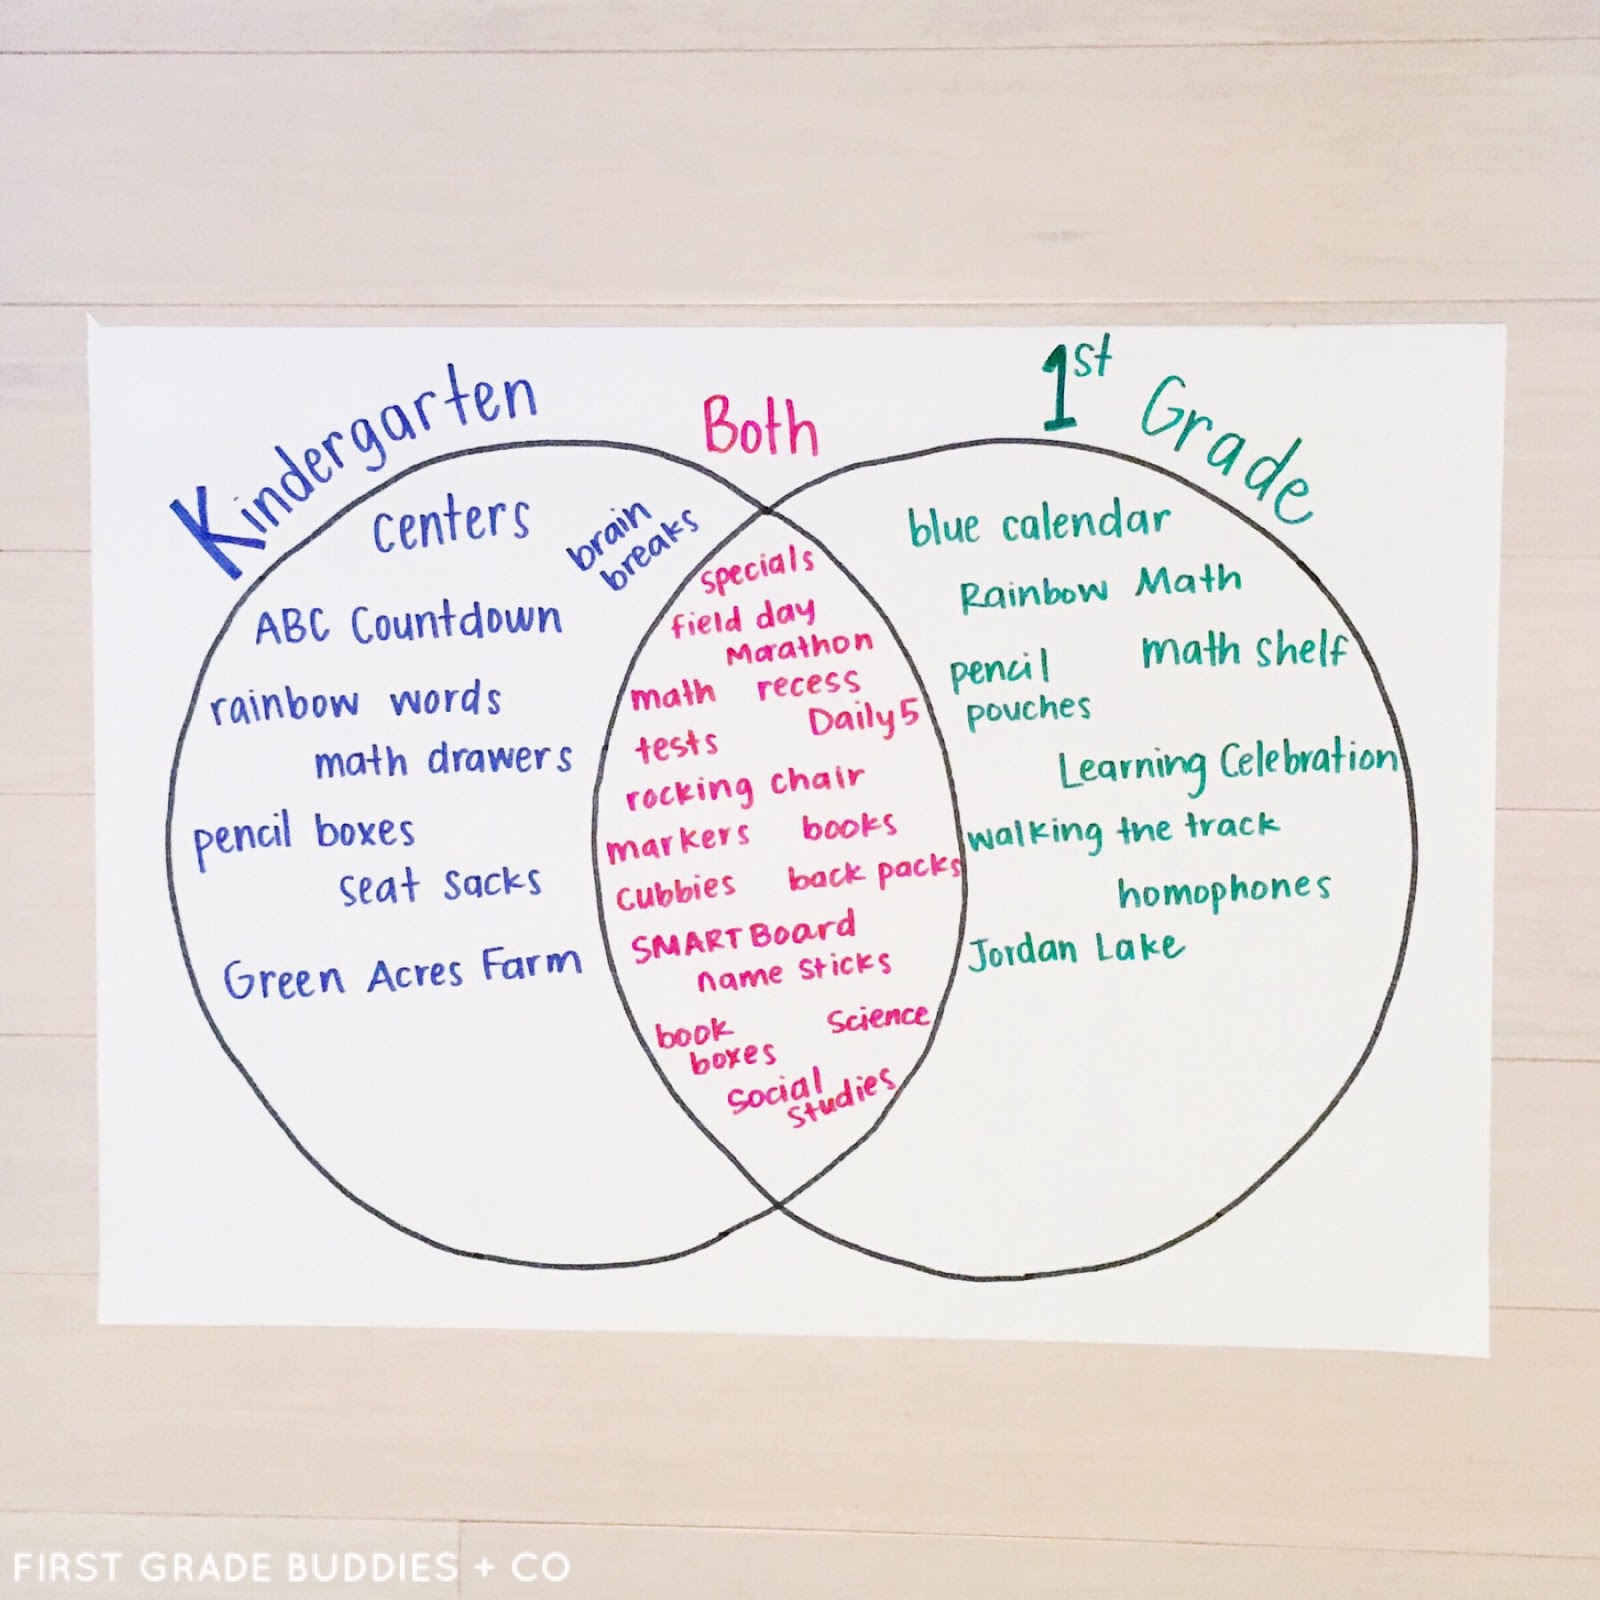 Kindergarten
Both
1st Grade
centers
brain
breaks
ABC Countdown
rainbow words
math drawers
pencil boxes
seat sacks
Green Acres Farm
specials
field day
Marathon
math recess
Daily 5
tests
rocking chair
markers books
cubbies back packs
SMART Board
name sticks
book
boxes
Science
Social
Studies
blue calendar
Rainbow Math
math shelf
pencil
pouches
Learning Celebration
walking the track
homophones
Jordan Lake
FIRST GRADE BUDDIES + CO